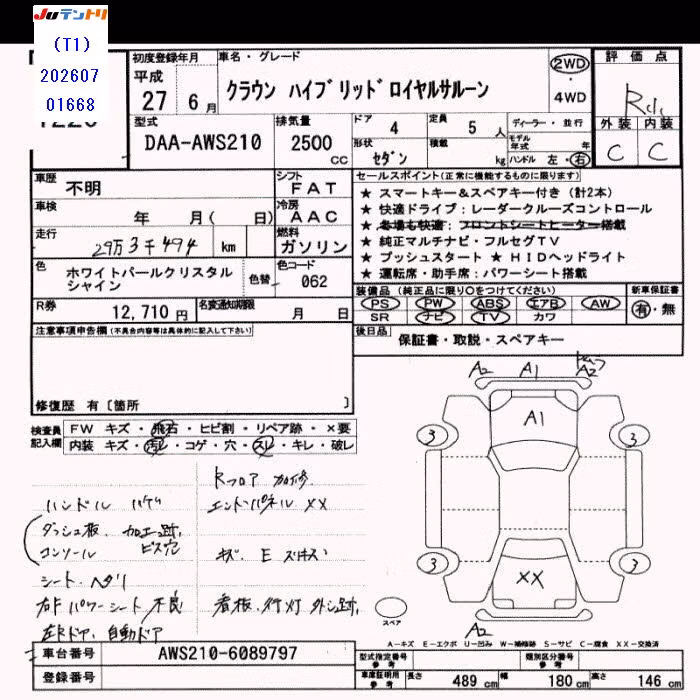 JUテントリ
(T1)
202607
01668
初度登録年月
平成
27年 6月
車名・グレード
クラウン ハイブリッドロイヤルサルーン
2WD
・
4WD
評価点
外装 内装
C C
型式
DAA-AWS210
排気量
2500 CC
ドア 4
定員 5 人
形状 セダン
積載 kg
ディーラー・並行
モデル年式 年
ハンドル 左・右
車歴 不明
シフト FAT
車検 年 月( 日)
冷房 AAC
走行 29万3千494 km
燃料 ガソリン
色 ホワイトパールクリスタルシャイン
色替
色コード 062
R券 12,710円
名変通知期限 月 日
セールスポイント(正常に機能するものに限ります)
★ スマートキー&スペアキー付き (計2本)
★ 快適ドライブ:レーダークルーズコントロール
★ 冬場も快適:フロントシートヒーター搭載
★ 純正マルチナビ・フルセグTV
★ プッシュスタート ★ HIDヘッドライト
★ 運転席・助手席:パワーシート搭載
装備品(純正品に限り○をつけてください)
PS PW ABS エアB AW
SR ナビ TV カワ
新車保証書
有・無
後日品 保証書・取説・スペアキー
注意事項申告欄(不具合内容等は具体的に記入して下さい)
修復歴 有〔箇所 〕
検査員記入欄
FW キズ・飛石・ヒビ割・リペア跡・×要
内装 キズ・汚レ・コゲ・穴・スレ・キレ・破レ
Rフロア 加修
ハンドル ハゲ
エンドパネル XX
ダッシュ板、加工跡、
コンソール ビス穴
キズ、E
シート、ヘタリ
右F パワーシート 不良
看板、行灯 外し跡、
自動ドア
A2 A1 A2
A1
3 3
3 3
XX
A2
スペア
A-キズ E-エクボ U-凹み W-補修跡 S-サビ C-腐食 XX-交換済
車台番号 AWS210-6089797
登録番号
型式指定番号 参考
類別区分番号 参考
車庫証明用 参考
長さ 489 cm
幅 180 cm
高さ 146 cm